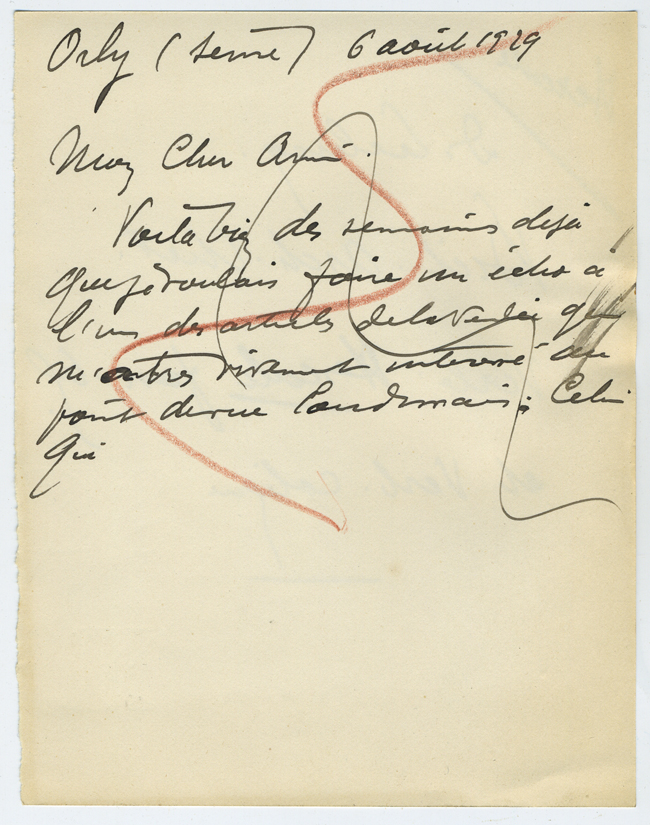 Orly (Seine) 6 août 1929
Mon Cher Ami.
Voilà bien des semaines déjà
que je voulais faire un écho à
l'un des articles de la Vendée qui
m'ont très vivement intéressé au
point de vue Loudunais; Celui
qui